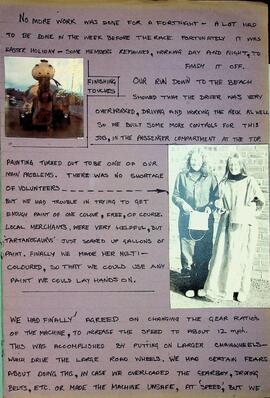 NO MORE WORK WAS DONE FOR A FORTNIGHT - A LOT HAD
TO BE DONE IN THE WEEK BEFORE THE RACE. FORTUNATELY IT WAS
EASTER HOLIDAY - SOME MEMBERS REMAINED, WORKING DAY AND NIGHT, TO
FINISH IT OFF.
FINISHING
TOUCHES
OUR RUN DOWN TO THE BEACH
SHOWED THAT THE DRIVER WAS VERY
OVERWORKED, DRIVING AND WORKING THE NECK AS WELL
SO WE BUILT SOME MORE CONTROLS FOR THIS
JOB, IN THE PASSENGER COMPARTMENT AT THE TOP.
PAINTING TURNED OUT TO BE ONE OF OUR
MAIN PROBLEMS. THERE WAS NO SHORTAGE
OF VOLUNTEERS
BUT WE HAD TROUBLE IN TRYING TO GET
ENOUGH PAINT OF ONE COLOUR, FREE, OF COURSE.
LOCAL MERCHANTS, WERE VERY HELPFUL, BUT
'TARTANOSAURUS' JUST SOAKED UP GALLONS OF
PAINT, FINALLY WE MADE HER MULTI-
COLOURED, SO THAT WE COULD USE ANY
PAINT WE COULD LAY HANDS ON.
WE HAD FINALLY AGREED ON CHANGING THE GEAR RATIOS
OF THE MACHINE, TO INCREASE THE SPEED TO ABOUT 12 mph.
THIS WAS ACCOMPLISHED BY PUTTING ON LARGER CHAINWHEELS-
WHICH DRIVE THE LARGE ROAD WHEELS. WE HAD CERTAIN FEARS
ABOUT DOING THIS, IN CASE WE OVERLOADED THE GEARBOX, DRIVING
BELTS, ETC. OR MADE THE MACHINE UNSAFE, AT 'SPEED', BUT WE